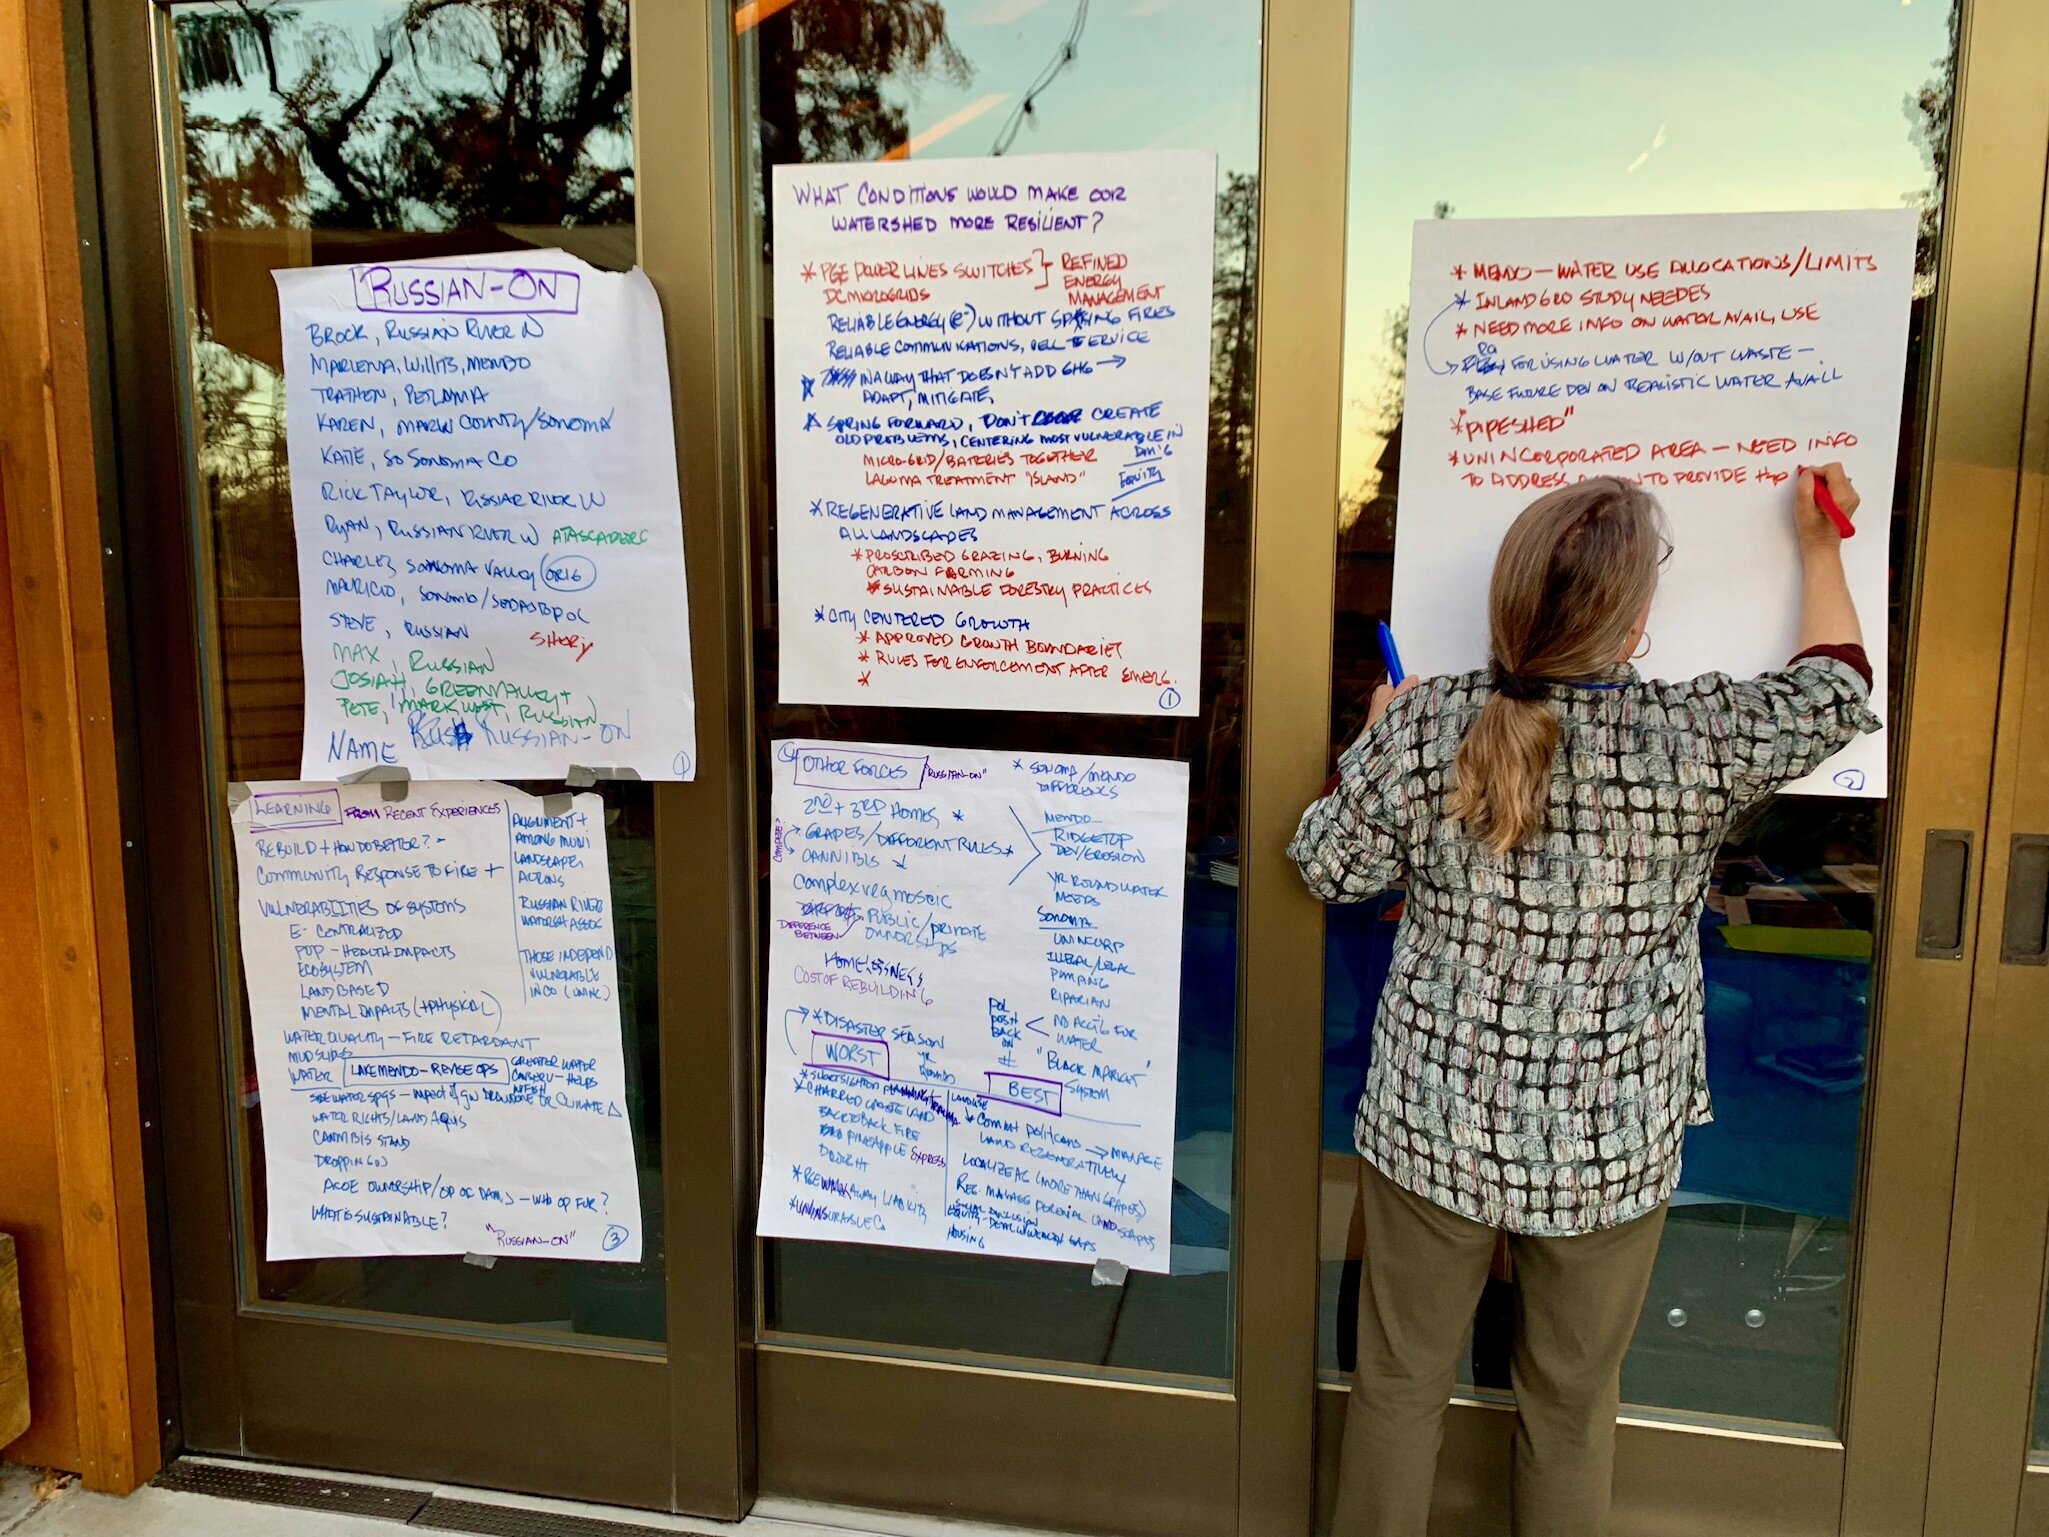 RUSSIAN-ON
BROCK, RUSSIAN RIVER W
MARLENA, WILLITS, MENDO
TRATHEN, PETLAMA
KAREN, MARIN COUNTY/SONOMA
KATE, SO SONOMA CO
RICK TAYLOR, RUSSIAN RIVER W
RYAN, RUSSIAN RIVER W ATASCADERO
CHARLES SONOMA VALLEY (ORIG)
MAURICIO, SONOMA/SEBASTOPOL
STEVE, RUSSIAN
SHERY
MAX, RUSSIAN
JOSIAH, GREEN VALLEY +
PETE, MARK WEST, RUSSIAN
NAME RUSSIAN-ON
1
LEARNING FROM RECENT EXPERIENCES
REBUILD + HOW DO BETTER? -
COMMUNITY RESPONSE TO FIRE +
VULNERABILITIES OF SYSTEMS
E- CENTRALIZED
PUP - HEALTH IMPACTS
ECOSYSTEM
LAND BASED
MENTAL IMPACTS (+PHYSICAL)
WATER QUALITY - FIRE RETARDANT
MUDSLIDES
WATER LAKE MENDO - REVISE OPS
WATER RIGHTS/LAND AQUIS
CANNIBIS STAND
DROPPING
ACOE OWNERSHIP/OP OF DAMS - WHO OP FOR?
WHAT IS SUSTAINABLE?
"RUSSIAN-ON"
3
ALIGNMENT +
AMONG MUNI
LANDSCAPES
ACROSS
RUSSIAN RIVER
WATERSH ASSOC
THOSE INDEPEND
VULNERABLE
IN CO (UNINC)
GREATER WATER
CONSERV - HELPS
WHAT CONDITIONS WOULD MAKE OUR
WATERSHED MORE RESILIENT?
* PGE POWER LINES SWITCHES } REFINED
DC MICROGRIDS ENERGY
MANAGEMENT
RELIABLE ENERGY (e-) WITHOUT SPARKING FIRES
RELIABLE COMMUNICATIONS, CELL SERVICE
* IN A WAY THAT DOESN'T ADD GHG →
ADAPT, MITIGATE,
* SPRING FORWARD, DON'T CREATE
OLD PROBLEMS, CENTERING MOST VULNERABLE IN
MICRO-GRID/BATERIES TOGETHER DM'G
LAGUNA TREATMENT "ISLAND" EQUITY
* REGENERATIVE LAND MANAGEMENT ACROSS
ALL LANDSCAPES
* PROSCRIBED GRAZING, BURNING
CARBON FARMING
* SUSTAINABLE FORESTRY PRACTICES
* CITY CENTERED GROWTH
* APPROVED GROWTH BOUNDARIES
* RULES FOR ENFORCEMENT AFTER EMERG.
*
1
4 OTHER FORCES "RUSSIAN-ON"
2ND + 3RD HOMES *
COMPETE? GRAPES/DIFFERENT RULES *
CANNIBIS
COMPLEX REG MOSAIC
DIFFERENCE BETWEEN PUBLIC/PRIVATE
OWNERSHIPS
HOMELESSNESS
COST OF REBUILDING
* DISASTER SEASON
YR ROUND
WORST
* CHARRED WASTELAND
BACK TO BACK FIRE
PINEAPPLE EXPRESS
DROUGHT
* PGE WALK AWAY LIABILITY
* UNINSURABLE CO
* SONOMA/MENDO
DIFFERENCES
MENDO
RIDGETOP
DEV/EROSION
YR ROUND WATER
NEEDS
SONOMA
UNINCORP
ILLEGAL/LEGAL
PUMPING
RIPARIAN
POL
PUSH
BACK
ON
#
NO ACC'G FOR
WATER
"BLACK MARKET"
SYSTEM
BEST
LAND USE
* COMMIT POLITICANS → MANAGE
LAND REGENERATIVELY
LOCALIZE AG (MORE THAN GRAPES)
REG. MANAGE PERENIAL LANDSCAPES
SOCIAL INCLUSION
EQUITY - DEAL W WEALTH GAPS
HOUSING
* MENDO - WATER USE ALLOCATIONS/LIMITS
* INLAND GRO STUDY NEEDES
* NEED MORE INFO ON WATER AVAIL, USE
FOR USING WATER W/OUT WASTE -
BASE FUTURE DEV ON REALISTIC WATER AVAIL
* "PIPESHED"
* UNINCORPORATED AREA - NEED INFO
TO ADDRESS TO PROVIDE H2O
2